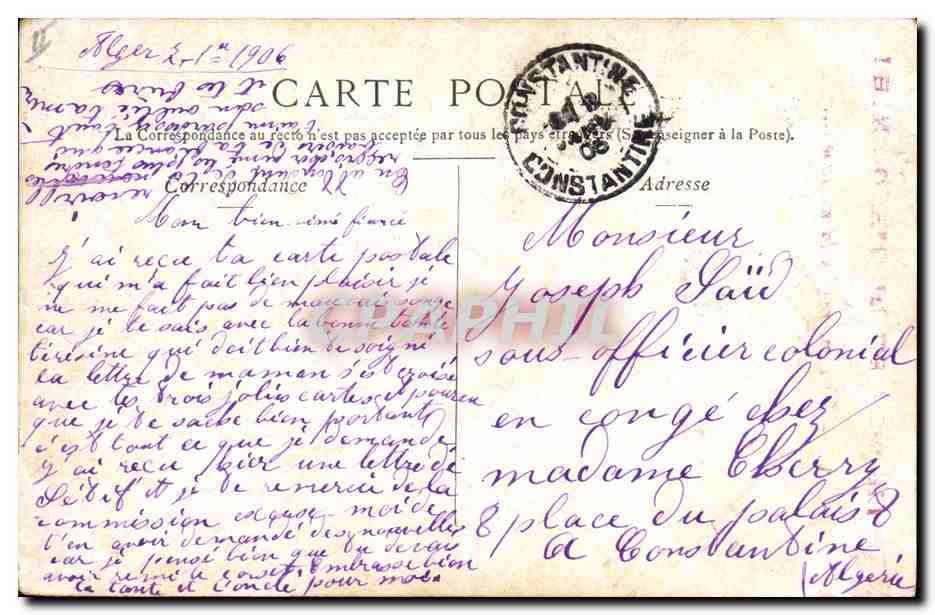 Alger 2-1er 1906
CARTE POSTALE
La Correspondance au recto n'est pas acceptée par tous les pays étrangers (Se renseigner à la Poste).
CONSTANTINE
CONSTANTINE
Correspondance
Adresse
Mon bien-aimé fiancé
J'ai reçu ta carte postale
qui m'a fait bien plaisir je
ne me fait pas de mauvais songe
car je te sais avec la bonne tante
térésine qui doit bien te soigné
la lettre de maman s'est croisé
avec tes trois jolies cartes et pourvu
que je te sache bien portant
c'est tout ce que je demande
J'ai reçu hier une lettre de
Sétif et je te remercie de la
commission excuse moi de
t'en avoir demandé des nouvelles
car je pensé bien que tu devais
avoir remi le corset Embrasse bien
ta tante et l'oncle pour moi
Monsieur
Joseph Saïd
sous-officier colonial
en congé chez
madame Cherry
8 place du palais 8
à Constantine
(Algerie
En attendant de
et les frères
CPAPHIL